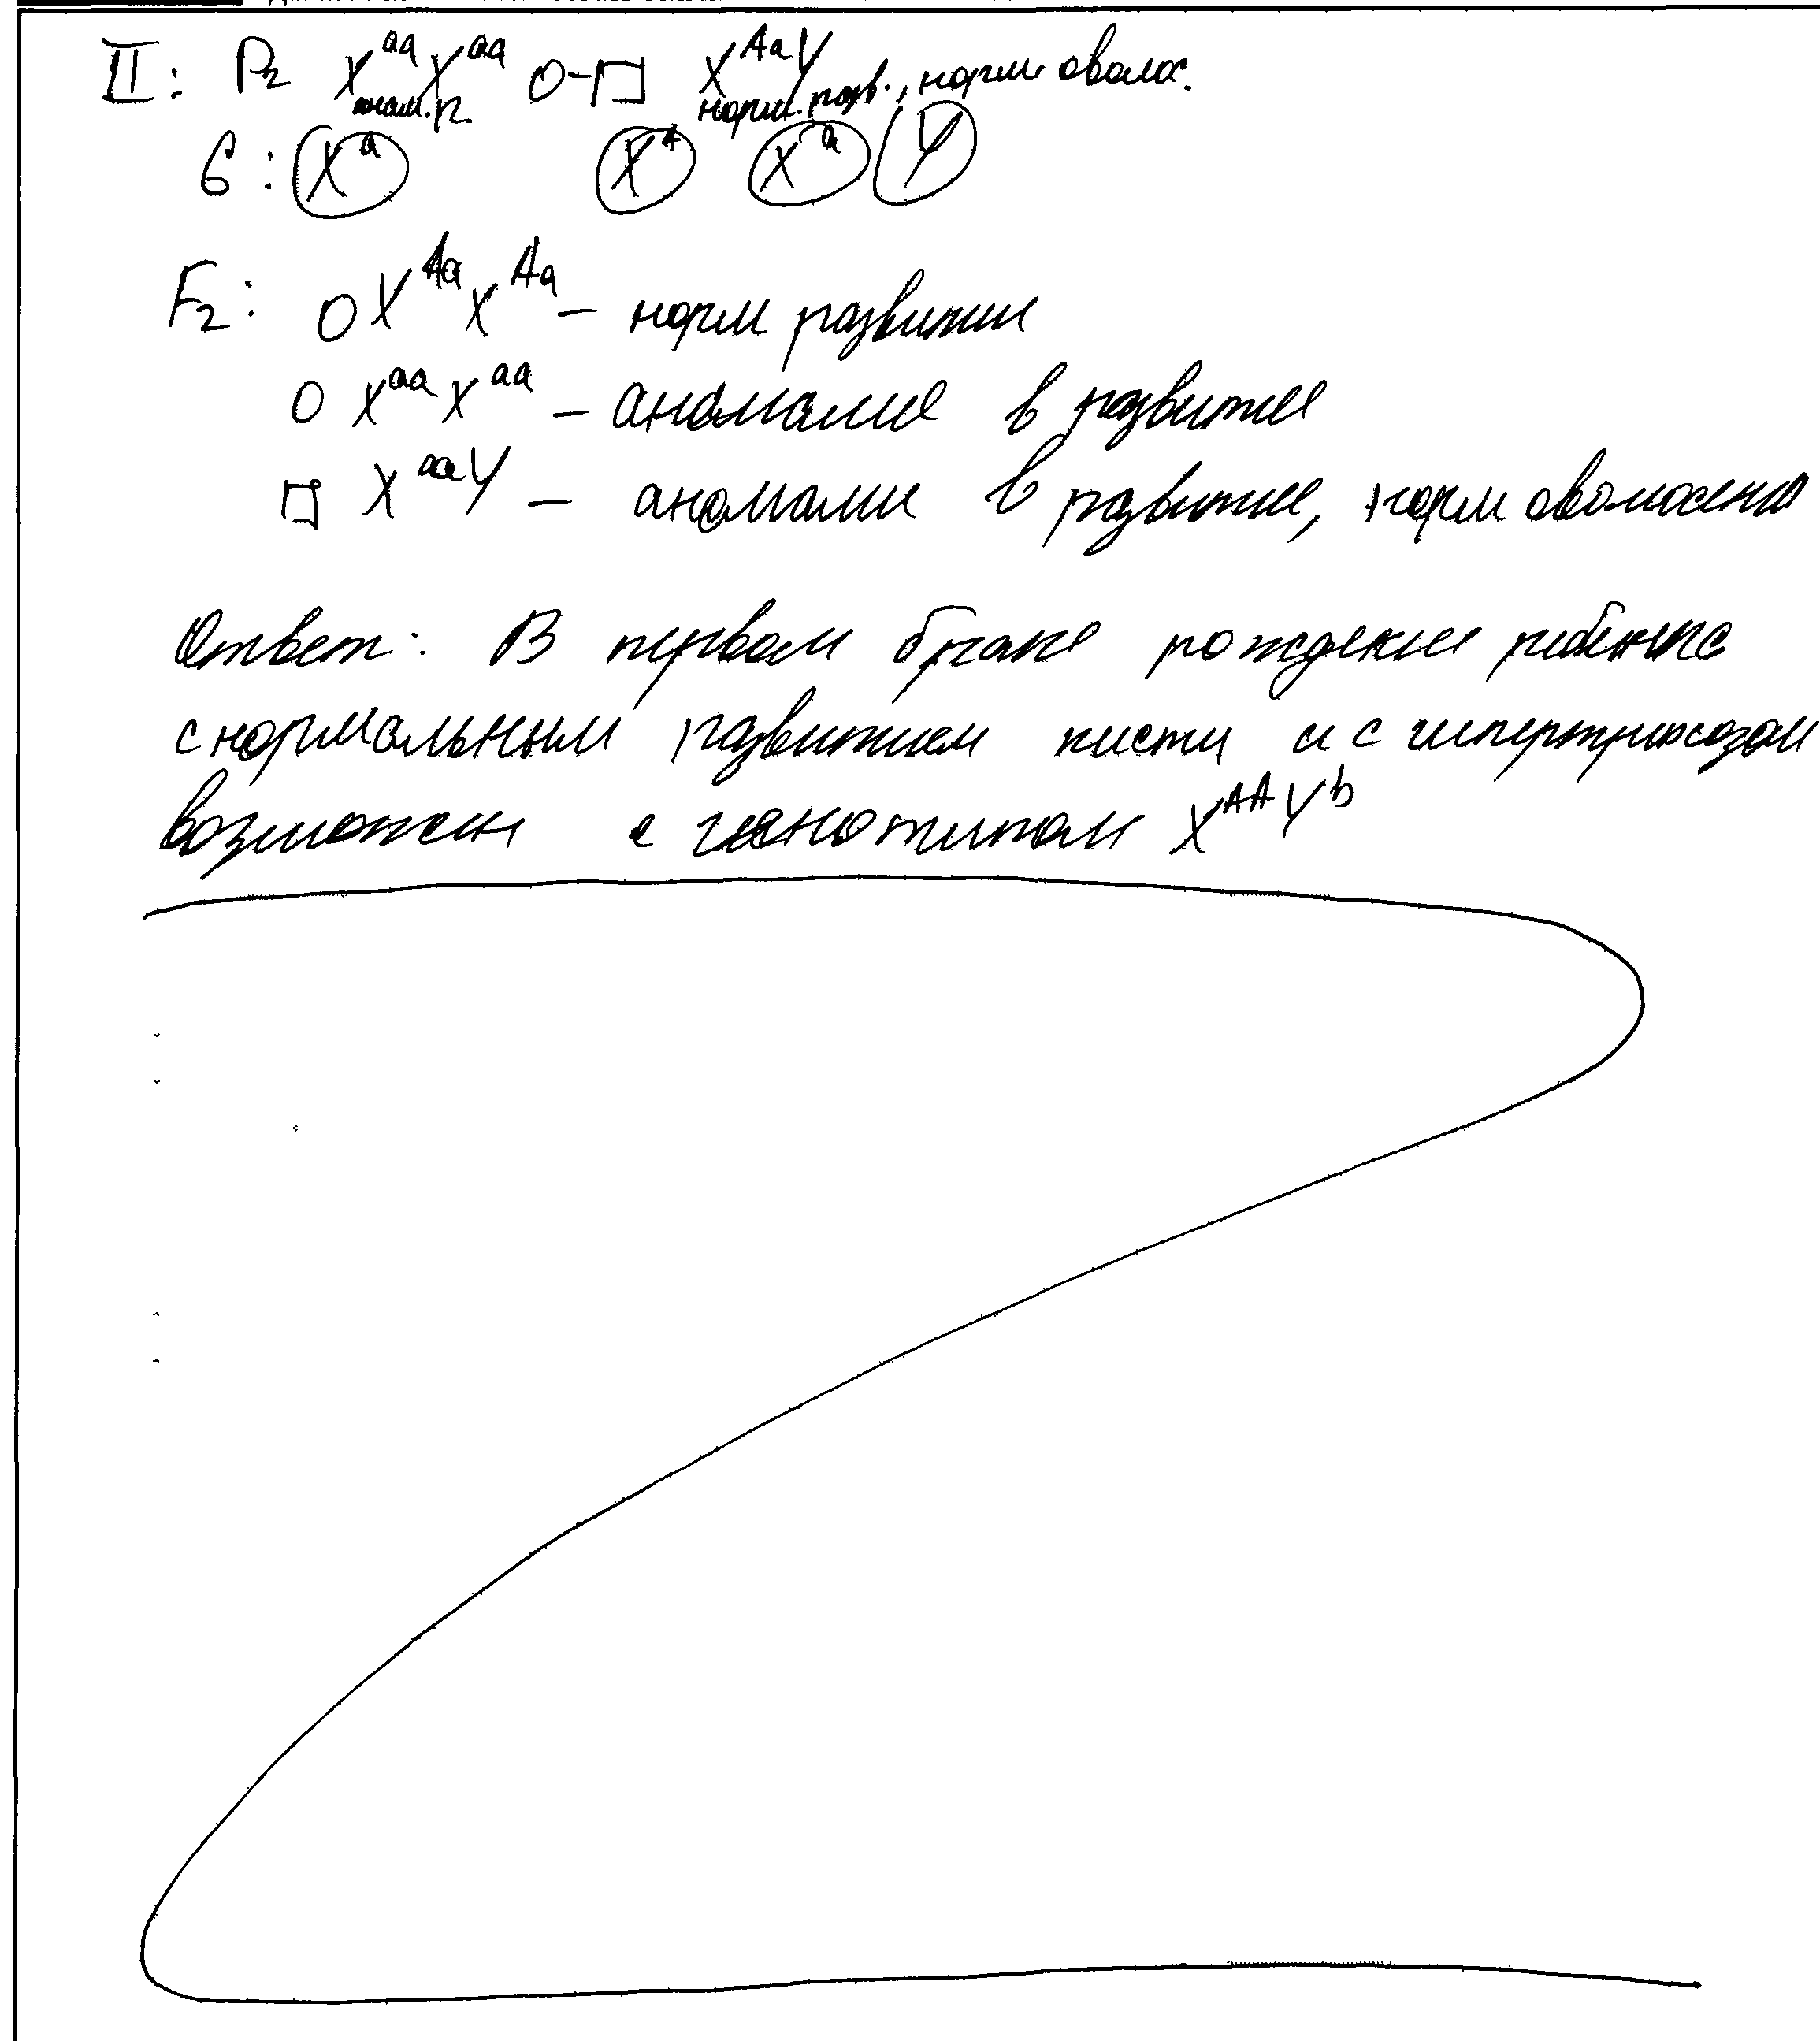 II: P₂ XᵃᵃXᵃᵃ O-□ XᴬᵃY
аном. р. норм. разв., норм. оволос.
G: Xᵃ Xᴬ Xᵃ Y
F₂: O XᴬᵃXᴬᵃ – норм развитие
O XᵃᵃXᵃᵃ – аномалие в развитие
□ XᵃᵃY – аномалии в развитие, норм оволосение
Ответ: В первом браке рождение ребёнка
с нормальным развитием кисти и с гипертрихозом
возможен с генотипом XᴬᴬYᵇ